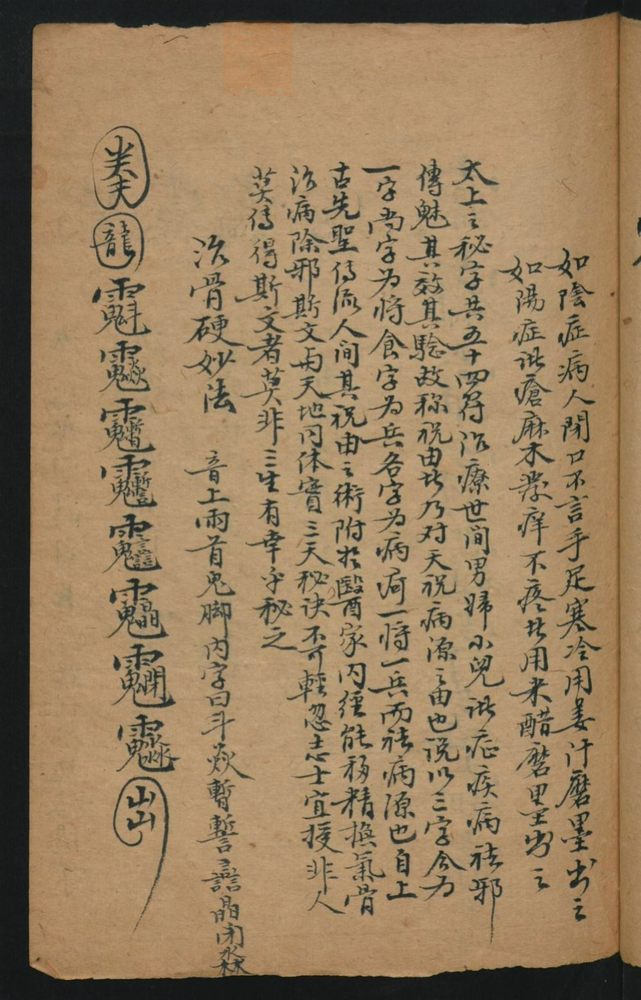 如陰症病人閉口不言手足寒冷用姜汁磨墨书之
如陽症訛瘡麻木發痒不疼者用米醋磨墨书之
太上之秘字共五十四符治療世间男婦小兒訛症疾病祛邪
傳魅其效其驗故称祝由者乃对天祝病源之由也説以三字合为
一字尚字为将食字为兵各字为病 一将一兵而祛病源也自上
古先聖傳流人间其祝由之術附於醫家内經能移精換氣骨
治病除邪斯文与天地同体實三天秘诀不可輕忽志士宜授非人
莫傳得斯文者莫非三生有幸乎秘之
治骨硬妙法　音上雨首鬼脚内字曰斗焱暫誓譶晶闭淼
龍